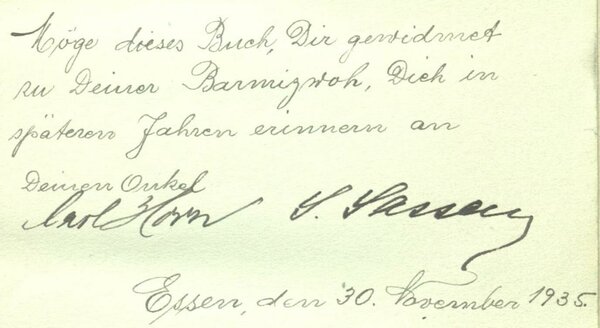 Möge dieses Buch, Dir gewidmet
zu Deiner Barmizwoh, Dich in
späteren Jahren erinnern an
Deinen Onkel
Carl Horn S. Sassen
Essen, den 30. November 1935.